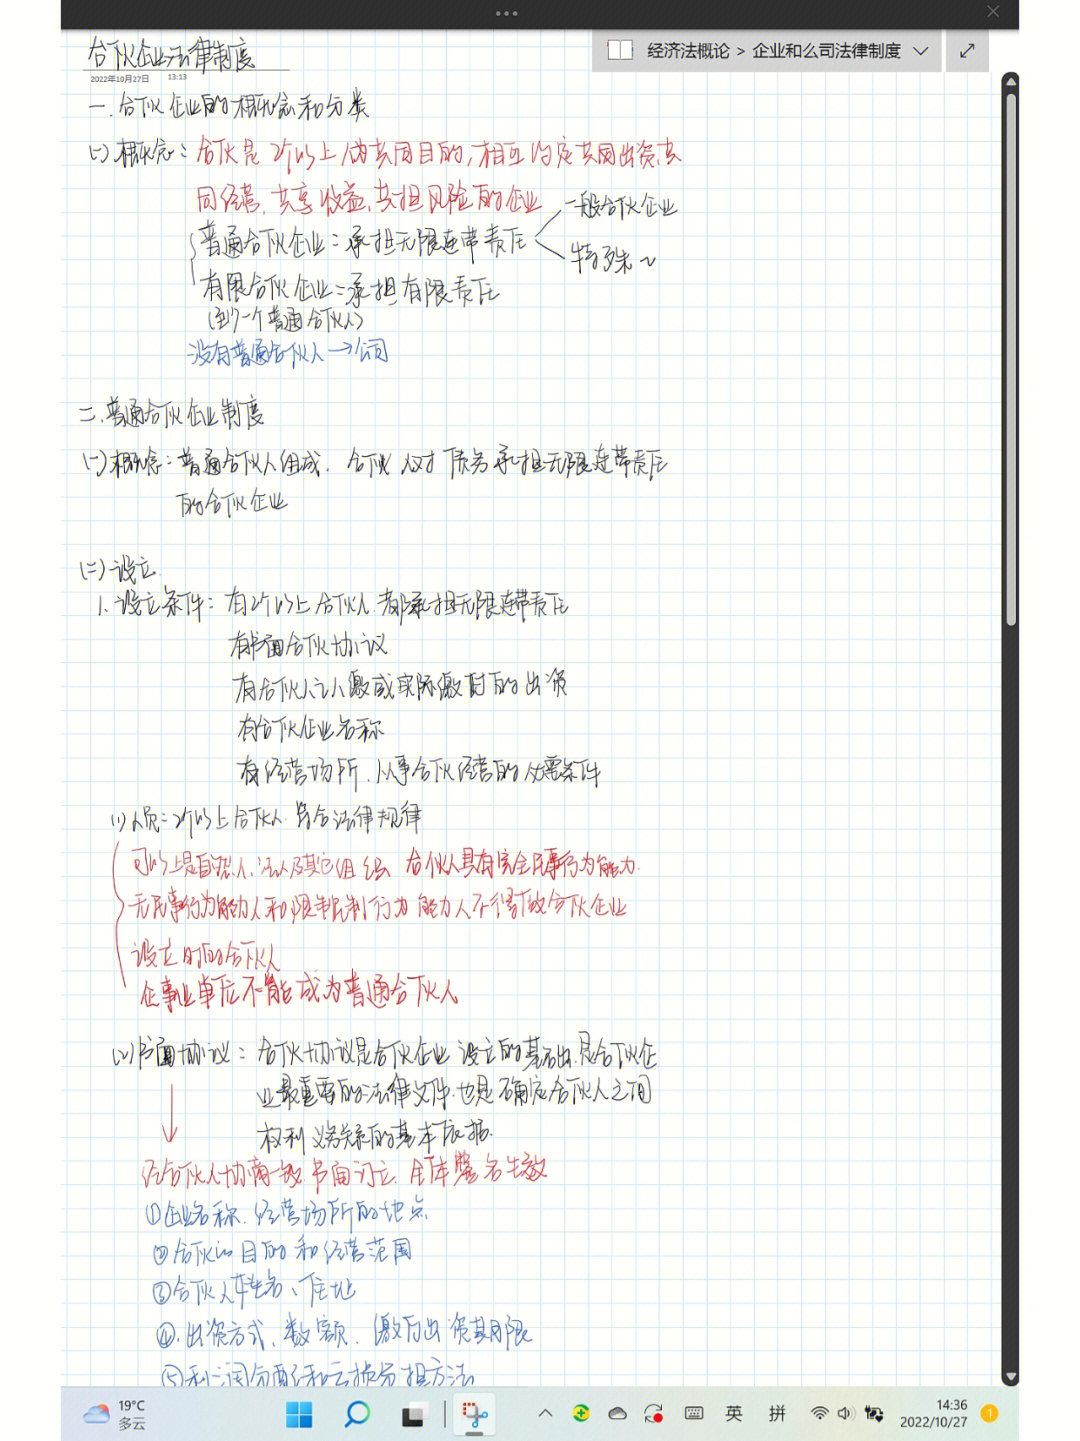 合伙企业法律制度
经济法概论 > 企业和么司法律制度
2022年10月27日 13:13
一.合伙企业的概念和分类
(一)概念：合伙是2个以上人为共同目的,相互约定共同出资、共
同经营、共享收益、共担风险的企业
一般合伙企业
普通合伙企业：承担无限连带责任
特殊~
有限合伙企业：承担有限责任
(至少一个普通合伙人)
没有普通合伙人→公司
二.普通合伙企业制度
(一)概念：普通合伙人组成.合伙人对债务承担无限连带责任
的合伙企业
(二)设立
1.设立条件：有2个以上合伙人.都承担无限连带责任
有书面合伙协议
有合伙人认缴或实际缴付的出资
有合伙企业名称
有经营场所.从事合伙经营的必需条件
(1)人员：2个以上合伙人.符合法律规律
可以上是自然人、法人及其它组织 合伙人具有完全民事行为能力.
无民事行为能力人和限制民事行为能力人不得做合伙企业
设立时的合伙人
企事业单位不能成为普通合伙人
(2)书面协议：合伙协议是合伙企业设立的基础.是合伙企
业最重要的法律文件.也是确定合伙人之间
权利义务关系的基本依据.
经合伙人协商一致.书面订立.全体签名生效
①企业名称.经营场所的地点
②合伙的目的和经营范围
③合伙人姓名、住址
④.出资方式、数额、缴付出资期限
⑤利润分配和亏损分担方法
19°C
多云
英 拼
14:36
2022/10/27
1